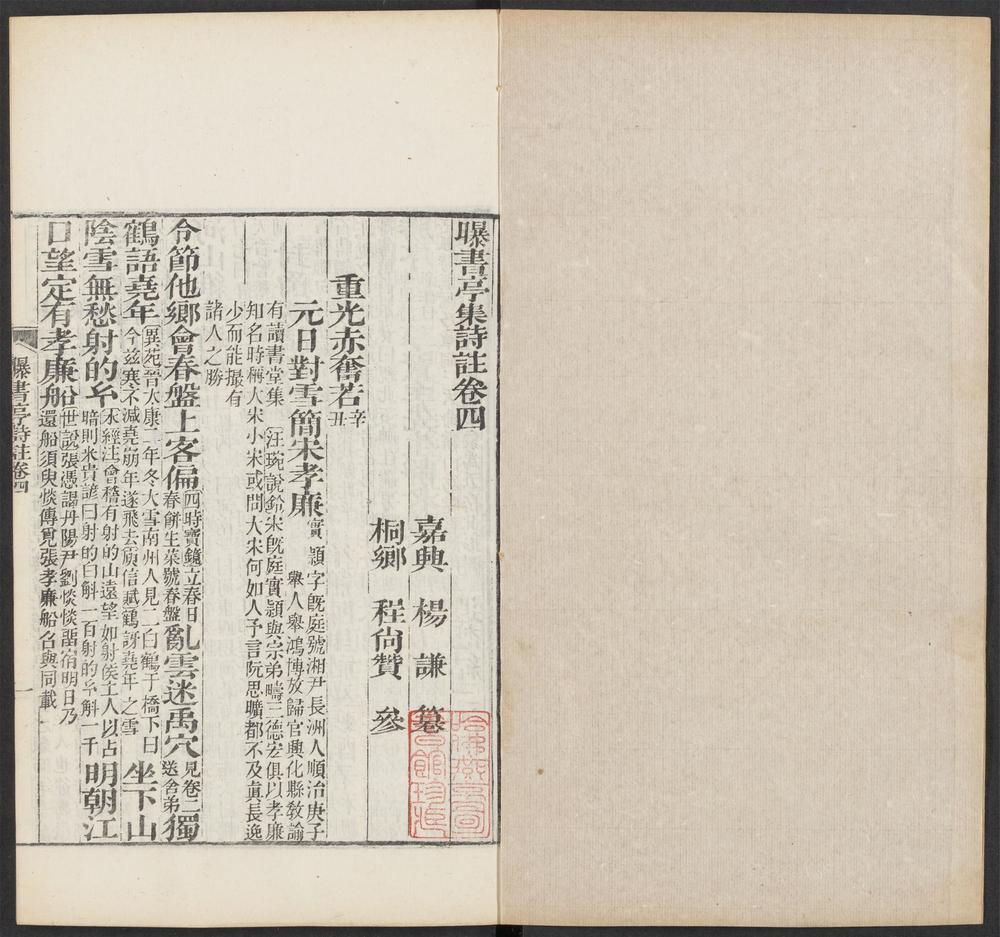 曝書亭集詩註卷四
嘉興 楊 謙 纂
桐鄉 程尙贊 參
重光赤奮若辛丑
元日對雪簡宋孝廉實 頴字旣庭號湘尹長洲人順治庚子
舉人舉鴻博放歸官興化縣敎諭
有讀書堂集 汪琬說鈴宋旣庭實頴與宗弟疇三德宏俱以孝廉
知名時稱大宋小宋或問大宋何如人予言阮思曠都不及眞長逸
少而能撮有
諸人之勝
令節他鄉會春盤上客偏四時寶鏡立春日
春餅生菜號春盤亂雲迷禹穴見卷二
送舍弟獨
鶴語堯年異苑晉太康二年冬大雪南州人見二白鶴于橋下曰
今兹寒不減堯崩年遂飛去庾信賦鶴訝堯年之雪坐下山
陰雪無愁射的𤣥水經注會稽有射的山遠望如射侯土人以占
暗則米貴諺曰射的白斛一百射的𤣥斛一千明朝江
口望定有孝廉船世說張憑謁丹陽尹劉惔惔畱宿明日乃
還船須臾惔傳覓張孝廉船名與同載
曝書亭詩註卷四 一
哈佛燕京圖
書館珍藏